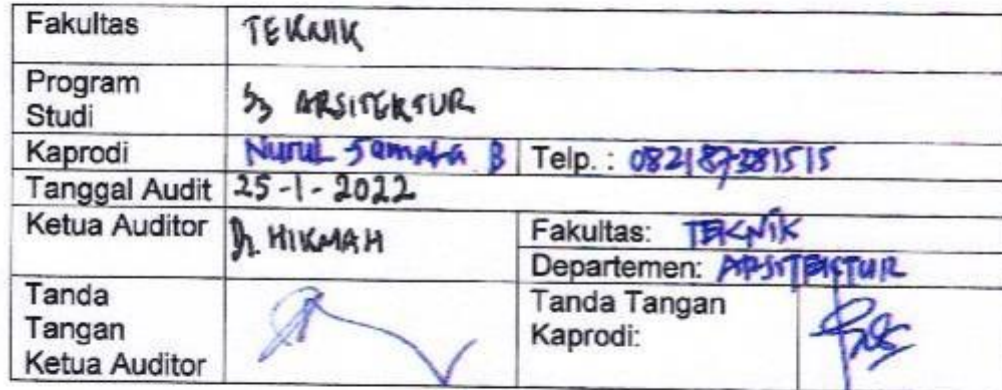 Fakultas TEKNIK
Program
Studi S3 ARSITEKTUR
Kaprodi Nurul Jamala B Telp. : 082187381515
Tanggal Audit 25-1-2022
Ketua Auditor Dr. HIKMAH Fakultas: TEKNIK
Departemen: ARSITEKTUR
Tanda
Tangan
Ketua Auditor
Tanda Tangan
Kaprodi: